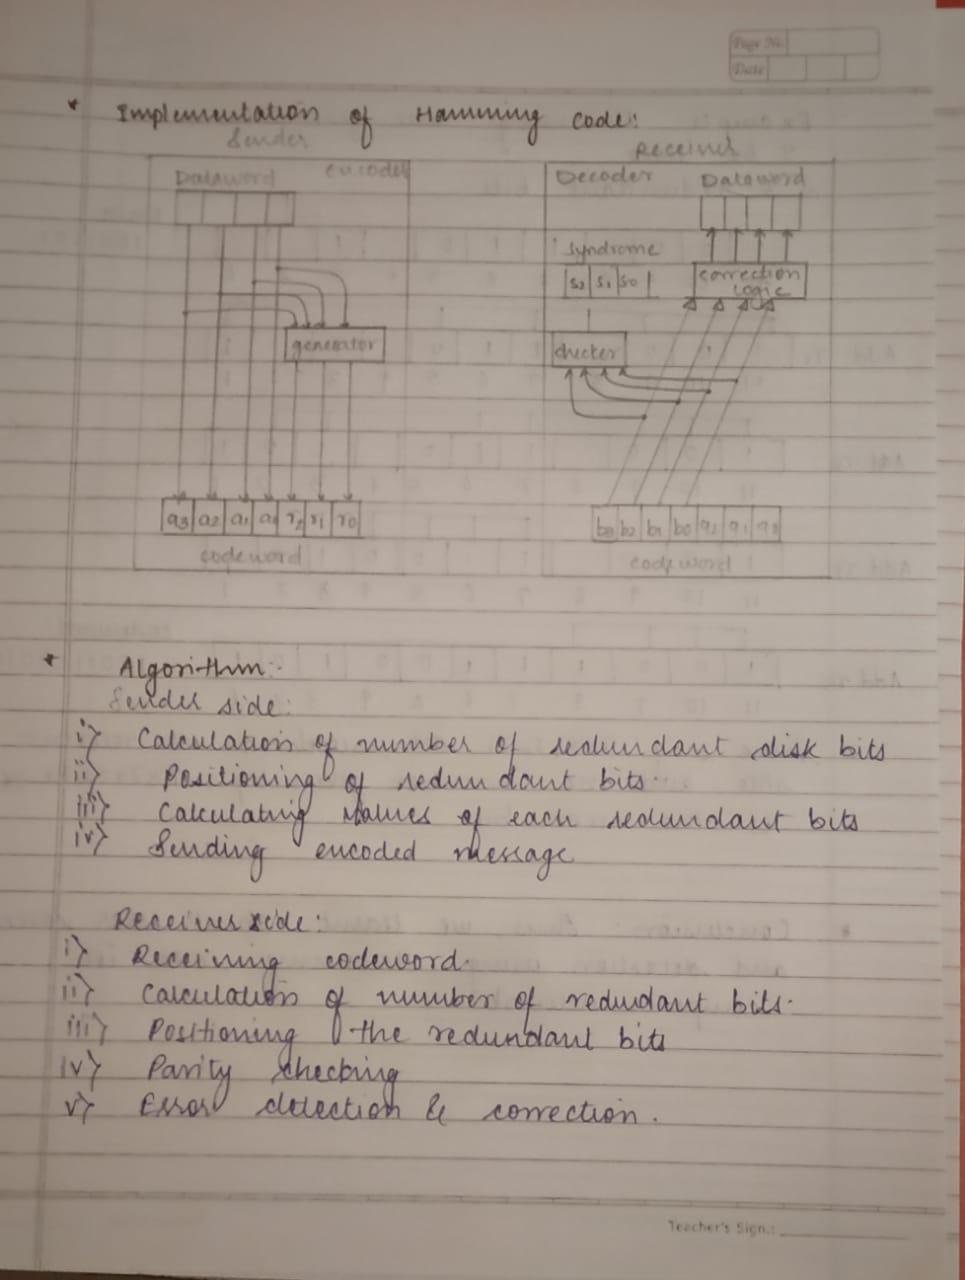 Page No.
Date
* Implementation of Hamming code:
Sender
Receiver
Dataword encoder
Decoder Dataword
Syndrome
s2 s1 s0
correction
logic
generator
checker
a3 a2 a1 a0 r2 r1 r0
b3 b2 b1 b0 q2 q1 q0
codeword
codeword
* Algorithm:
Sender side:
i) Calculation of number of redundant disk bits
ii) Positioning of redundant bits.
iii) Calculating values of each redundant bits
iv) Sending encoded message
Receiver side:
i) Receiving codeword.
ii) Calculation of number of redudant bits.
iii) Positioning the redundant bits
iv) Parity checking
v) Error detection & correction.
Teacher's Sign.: